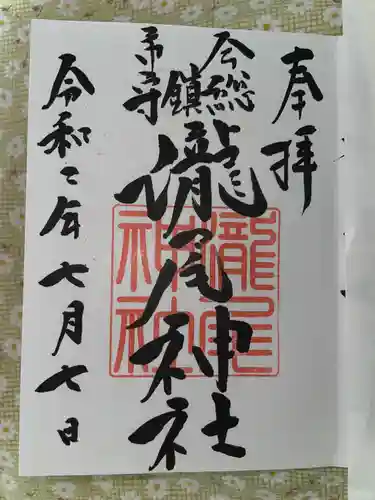 奉拝
今市総鎮守
瀧尾神社
令和二年七月七日
瀧尾
神社